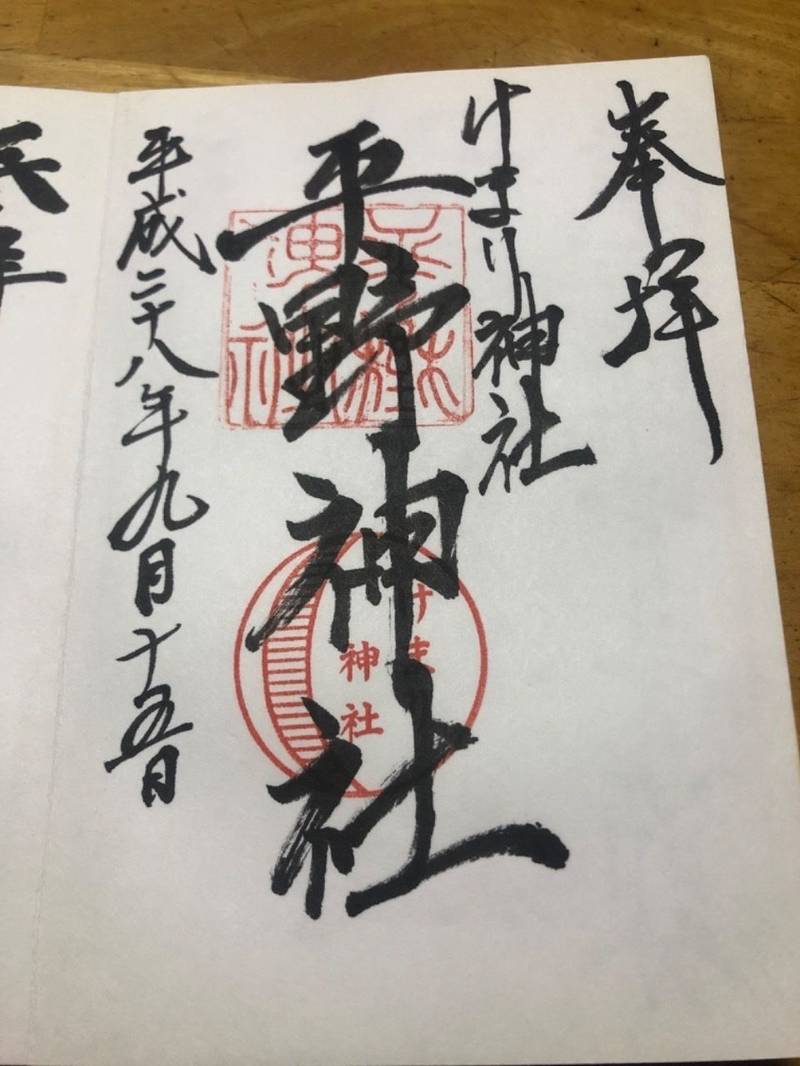 奉拝
けまり神社
平野神社
けま
神社
平成二十八年九月十五日